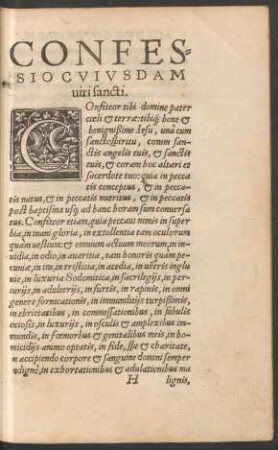 CONFES-
SIO CVIVSDAM
uiri sancti.
Confiteor tibi domine pater
cœli & terræ: tibiq; bone &
benignissime Iesu, unà cum
sancto spiritu, coram san-
ctis angelis tuis, & sanctis
tuis, & coram hoc altari et
sacerdote tuo: quia in pecca
tis conceptus, & in pecca-
tis natus, & in peccatis nutritus, & in peccatis
post baptisma usq; ad hanc horam sum conuersa
tus. Confiteor etiam, quia peccaui nimis in super
bia, in inani gloria, in extollentia tam oculorum
quàm uestium: & omnium actuum meorum, in in-
uidia, in odio, in auaritia, tam honoris quàm pe-
cuniæ, in ira, in tristitia, in acedia, in uentris inglu
uie, in luxuria Sodomitica, in sacrilegijs, in periu-
rijs, in adulterijs, in furtis, in rapinis, in omni
genere fornicationis, in immunditijs turpissimis,
in ebrietatibus, in commessationibus, in fabulis
ociosis, in luxurijs, in osculis & amplexibus im-
mundis, in fœmoribus & genitalibus meis, in ho-
micidijs animo optatis, in fide, spe & charitate,
in accipiendo corpore & sanguine domini semper
indignè, in exhortationibus & adulationibus ma
H lignis,